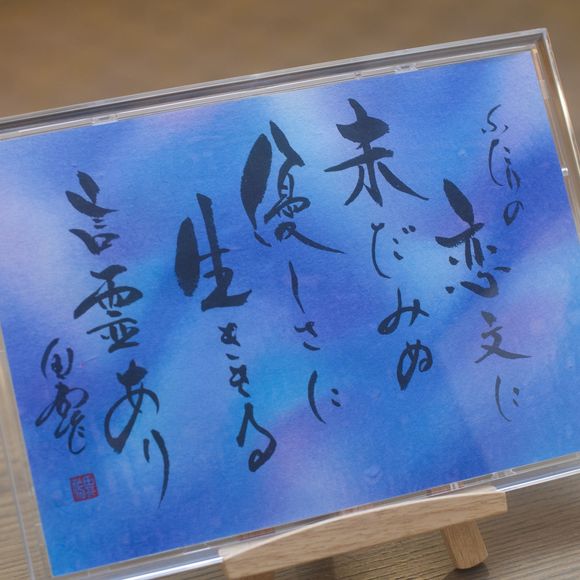 ふたりの恋文に
未だみぬ
優しさに
生ききる
言霊あり